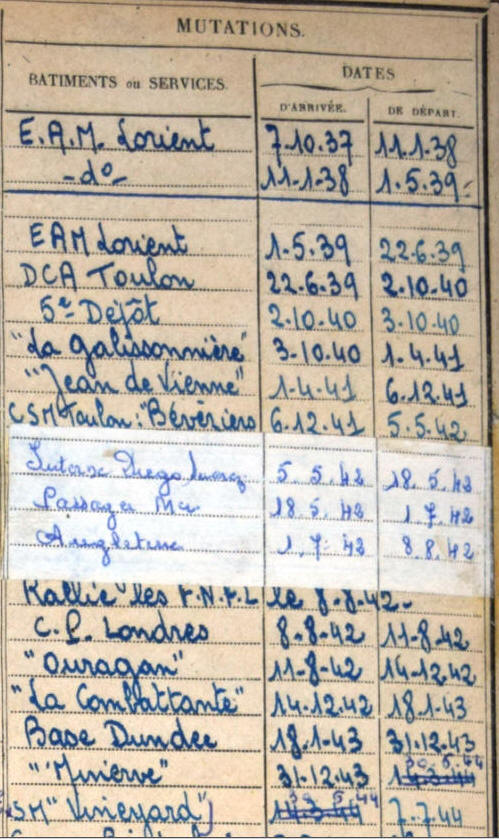 MUTATIONS.
BATIMENTS ou SERVICES.
DATES
D'ARRIVÉE.
DE DÉPART.
E.A.M. Lorient 7.10.37 11.1.38
-d°- 11-1-38 1.5.39-
EAM Lorient 1.5.39 22.6.39
DCA Toulon 22.6.39 2.10.40
5e Dépôt 2.10.40 3.10.40
"La Galissonnière" 3.10.40 1.4.41
"Jean de Vienne" 1.4.41 6.12.41
CSM Toulon: "Béveziers 6.12.41 5.5.42
Diego Suarez 5.5.42 18.5.42
Passager 18.5.42 1.7.42
Angleterre 1.7.42 8.8.42
Rallié les F.N.F.L le 8.8.42-
C.P. Londres 8-8-42 11-8.42
"Ouragan" 11-8-42 14-12.42
"La Combattante" 14.12.42 18.1-43
Base Dundee 18.1-43 31.12.43
"Minerve" 31.12.43
SM "Vineyard" 7-7.44